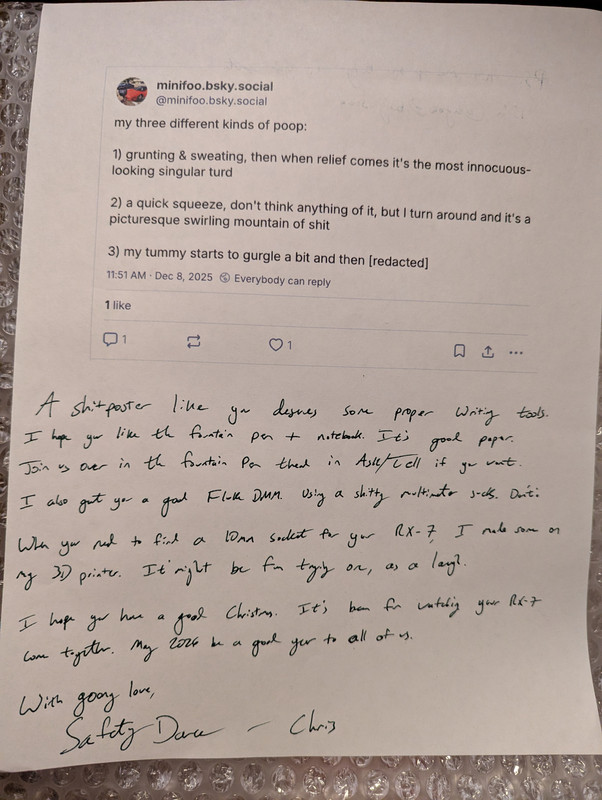 minifoo.bsky.social
@minifoo.bsky.social
my three different kinds of poop:
1) grunting & sweating, then when relief comes it's the most innocuous-
looking singular turd
2) a quick squeeze, don't think anything of it, but I turn around and it's a
picturesque swirling mountain of shit
3) my tummy starts to gurgle a bit and then [redacted]
11:51 AM · Dec 8, 2025 Everybody can reply
1 like
1 1
A shitposter like you deserves some proper writing tools.
I hope you like the fountain pen + notebook. It's good paper.
Join us over in the fountain pen thread in Ask/Tell if you want.
I also got you a good Fluke DMM. Using a shitty multimeter sucks.
When you need to find a 10mm socket for your RX-7, I made some on
my 3D printer. It might be fun trying one, as a laugh.
I hope you have a good Christmas. It's been fun watching your RX-7
come together. May 2026 be a good year to all of us.
With goony love,
Safety Dance - Chris